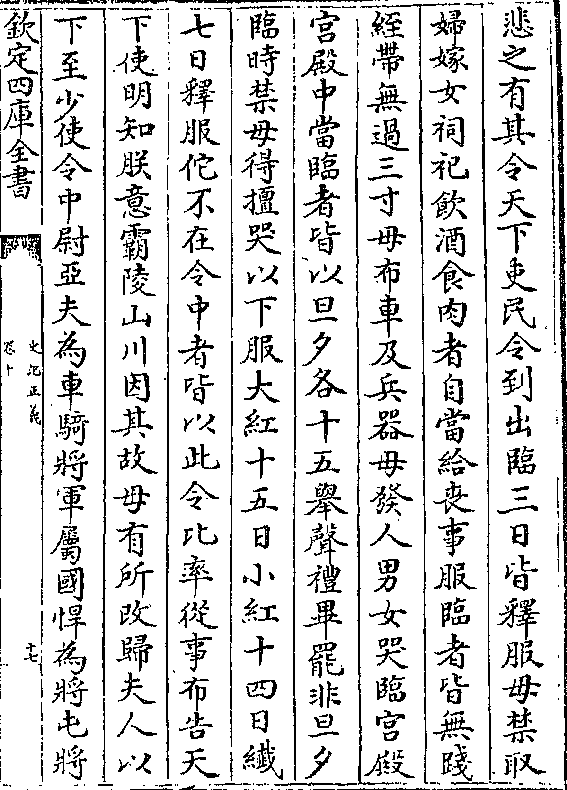 悲之有其令天下吏民令到出臨三日皆釋服毋禁取
婦嫁女祠祀飲酒食肉者自當給喪事服臨者皆無踐
絰帶無過三寸毋布車及兵器毋發人男女哭臨宫殿
宫殿中當臨者皆以旦夕各十五舉聲禮畢罷非旦夕
臨時禁毋得擅哭以下服大紅十五日小紅十四日纎
七日釋服佗不在令中者皆以此令比率從事布告天
下使明知朕意霸陵山川因其故毋有所改歸夫人以
下至少使令中尉亞夫為車騎將軍屬國悍為將屯將
欽定四庫全書
史記正義
卷十
十七